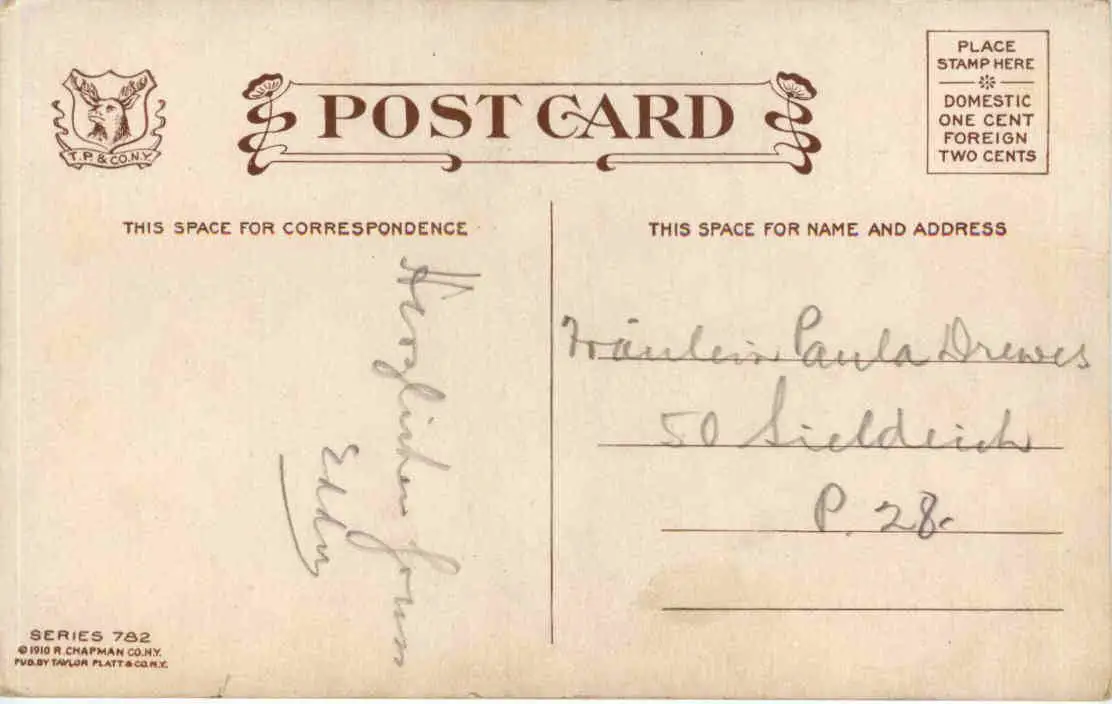 T.P. & CO. N.Y.
POST CARD
PLACE
STAMP HERE
DOMESTIC
ONE CENT
FOREIGN
TWO CENTS
THIS SPACE FOR CORRESPONDENCE
Herzlichen Gruss
Eddy
THIS SPACE FOR NAME AND ADDRESS
Fräulein Paula Drewes
50 Sieldeich
P. 28.
SERIES 782
© 1910 R. CHAPMAN CO. N.Y.
PUB. BY TAYLOR PLATT & CO. N.Y.